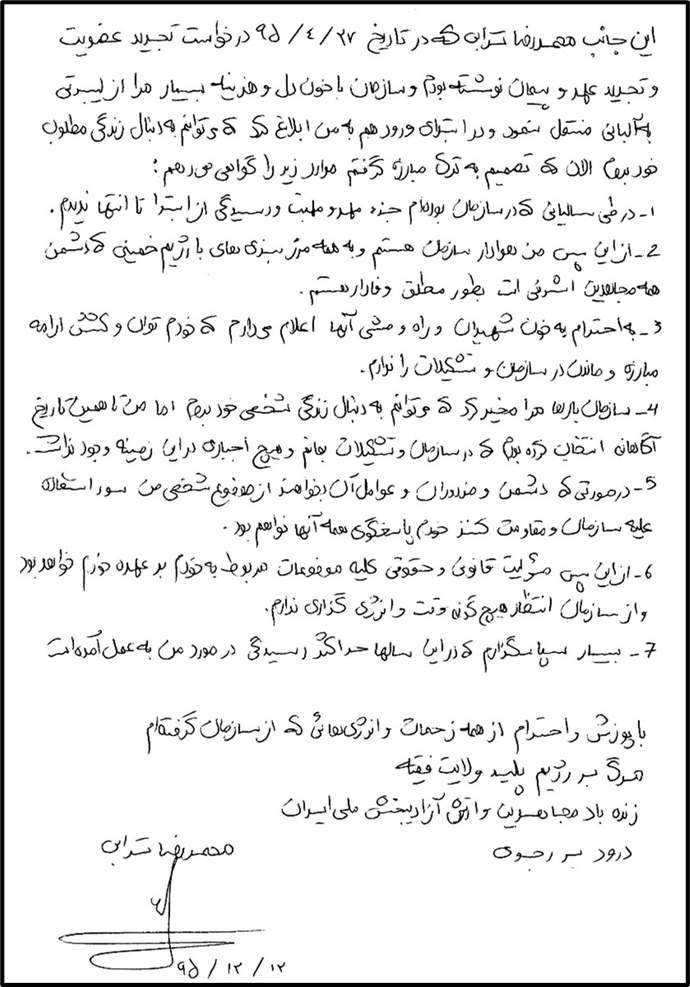 این جانب محمدرضا ترابی که در تاریخ ۹۵/۴/۲۷ درخواست تجدید عضویت
و تجدید عهد و پیمان نوشته بودم و سازمان با خون دل و هزینه بسیار مرا از لیبرتی
به آلبانی منتقل نمود و در ابتدای ورود هم به من ابلاغ کرد که می توانم به دنبال زندگی مطلوب
خود بروم الان که تصمیم به ترک مبارزه گرفتم موارد زیر را گواهی می دهم:
۱- در طی سالیانی که در سازمان بوده ام جزء مهر و محبت و رسیدگی از ابتدا تا انتها ندیدم.
۲- از این پس من هوادار سازمان هستم و به همه مرزبندی های با رژیم خمینی که دشمن
همه مجاهدین اشرفی است بطور مطلق وفادار هستم.
۳- به احترام به خون شهیدان و راه و مشی آنها اعلام می دارم که خودم توان و کشش ادامه
مبارزه و ماندن در سازمان و تشکیلات را ندارم.
۴- سازمان بارها مرا مخیر کرد که می توانم به دنبال زندگی شخصی خود بروم اما من تا همین تاریخ
آگاهانه انتخاب کرده بودم که در سازمان و تشکیلات بمانم و هیچ اجباری در این زمینه وجود نداشت.
۵- در صورتی که دشمن و مزدوران و عوامل آن بخواهند از موضوع شخصی من سوء استفاده
علیه سازمان و مقاومت کنند خودم پاسخگوی همه آنها خواهم بود.
۶- از این پس مسئولیت قانونی و حقوقی کلیه موضوعات مربوط به خودم بر عهده خودم خواهد بود
و از سازمان انتظار هیچ گونه وقت و انرژی گذاری ندارم.
۷- بسیار سپاسگزارم که در این سالها حداکثر رسیدگی در مورد من به عمل آمده است
با پوزش و احترام از همه زحمات و انرژی هائی که از سازمان گرفته ام
مرگ بر رژیم پلید ولایت فقیه
زنده باد مجاهدین و ارتش آزادیبخش ملی ایران
درود بر رجوی
محمدرضا ترابی
۹۵/۱۲/۱۲